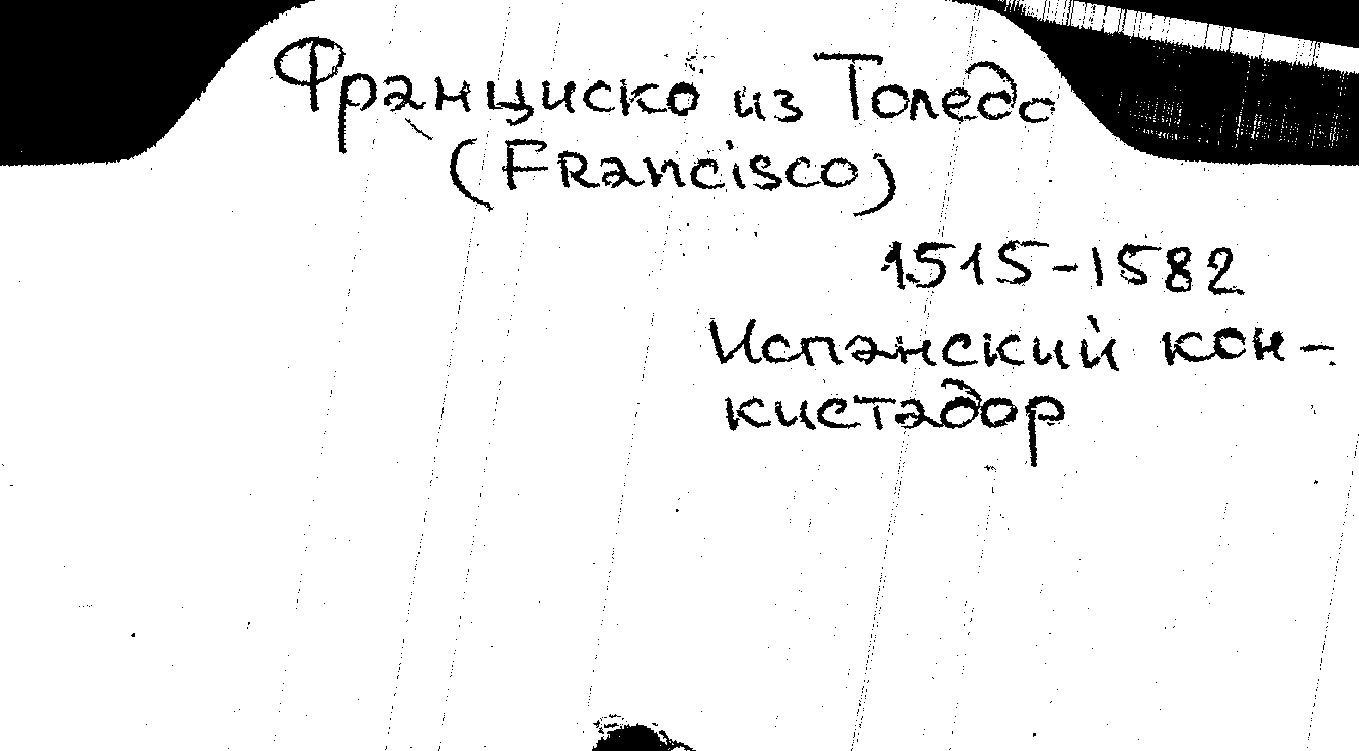 Франциско из Толедо
(Francisco)
1515-1582
Испанский кон-
кистадор